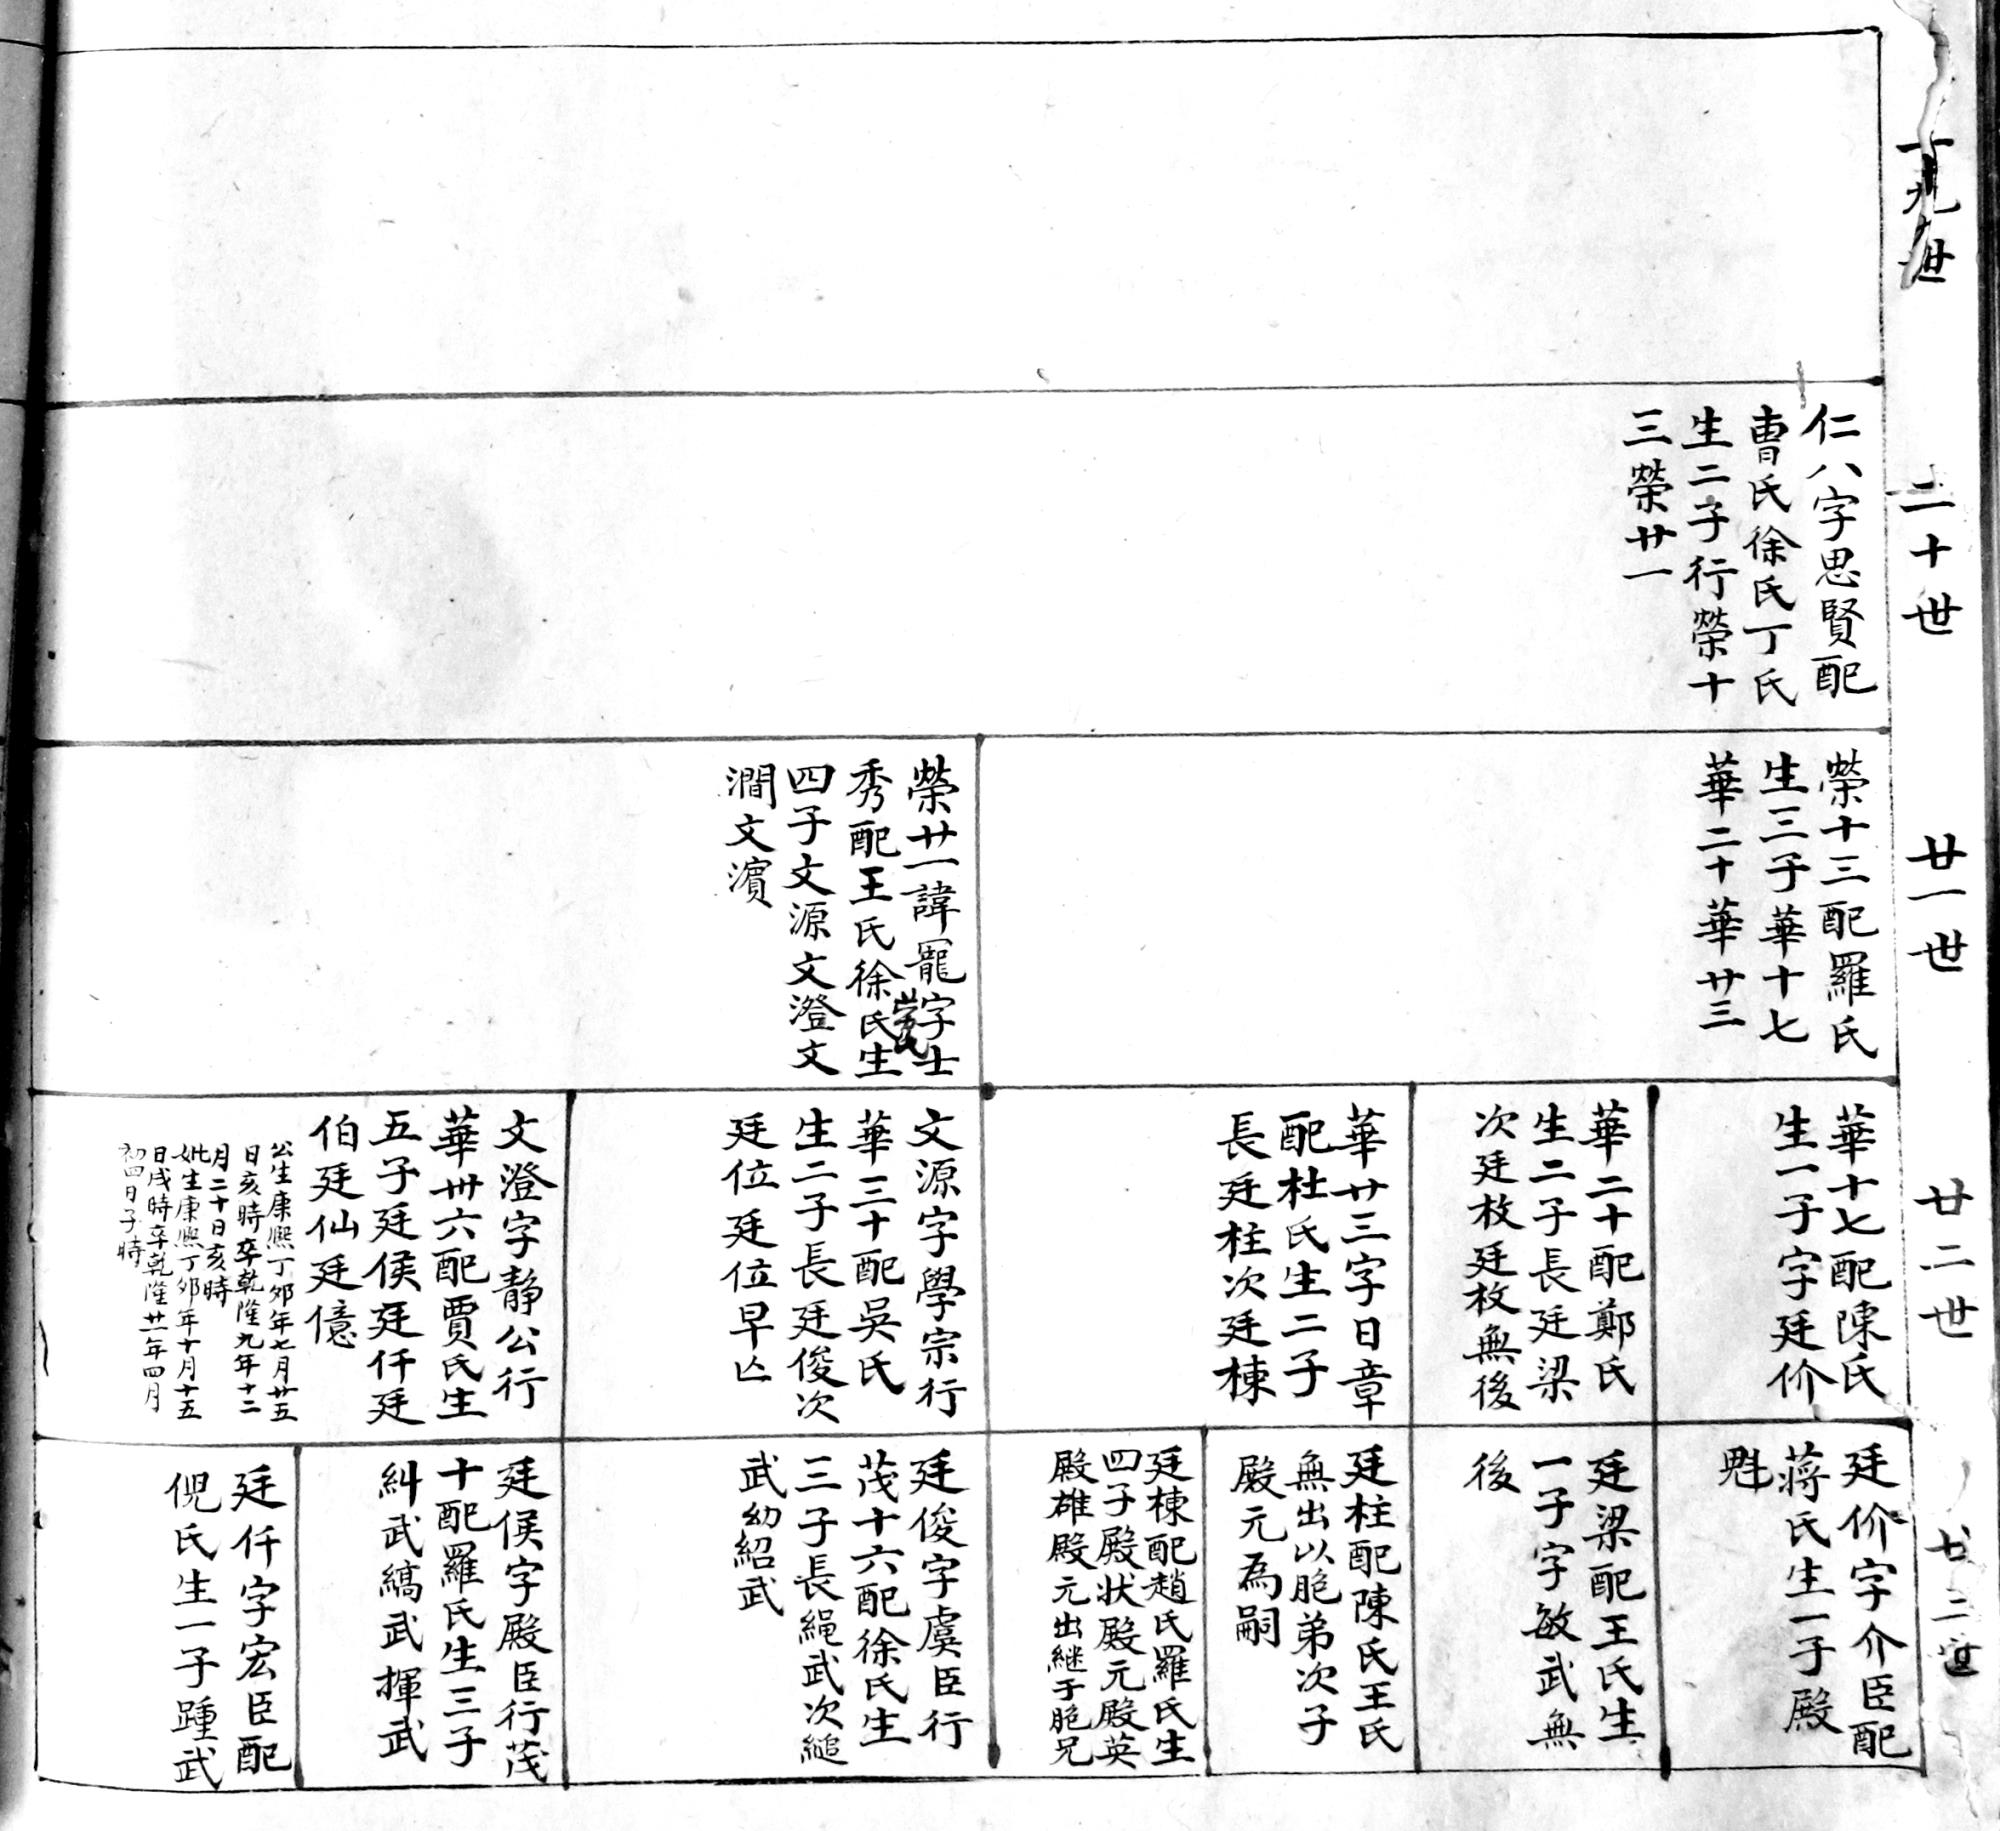 十九世
二十世
仁八字思賢配
曹氏徐氏丁氏
生二子行榮十
三榮廿一
廿一世
榮十三配羅氏
生三子華十七
華二十華廿三
榮廿一諱寵字士
秀配王氏徐氏生
四子文源文澄文
澗文濱
廿二世
華十七配陳氏
生一子字廷价
華二十配鄭氏
生二子長廷梁
次廷枚廷枚無後
華廿三字日章
配杜氏生二子
長廷柱次廷棟
文源字學宗行
華三十配吳氏
生二子長廷俊次
廷位廷位早亾
文澄字静公行
華卅六配賈氏生
五子廷侯廷仟廷
伯廷仙廷億
公生康熈丁夘年七月廿五
日亥時卒乾隆九年十二
月二十日亥時
妣生康熈丁夘年十月十五
日戌時卒乾隆廿一年四月
初四日子時
廿三世
廷价字介臣配
蒋氏生一子殿
魁
廷梁配王氏生
一子字敏武無
後
廷柱配陳氏王氏
無出以胞弟次子
殿元為嗣
廷棟配趙氏羅氏生
四子殿状殿元殿英
殿雄殿元出継于胞兄
廷俊字虞臣行
茂十六配徐氏生
三子長繩武次縋
武幼紹武
廷侯字殿臣行茂
十配羅氏生三子
糾武縞武揮武
廷仟字宏臣配
倪氏生一子踵武